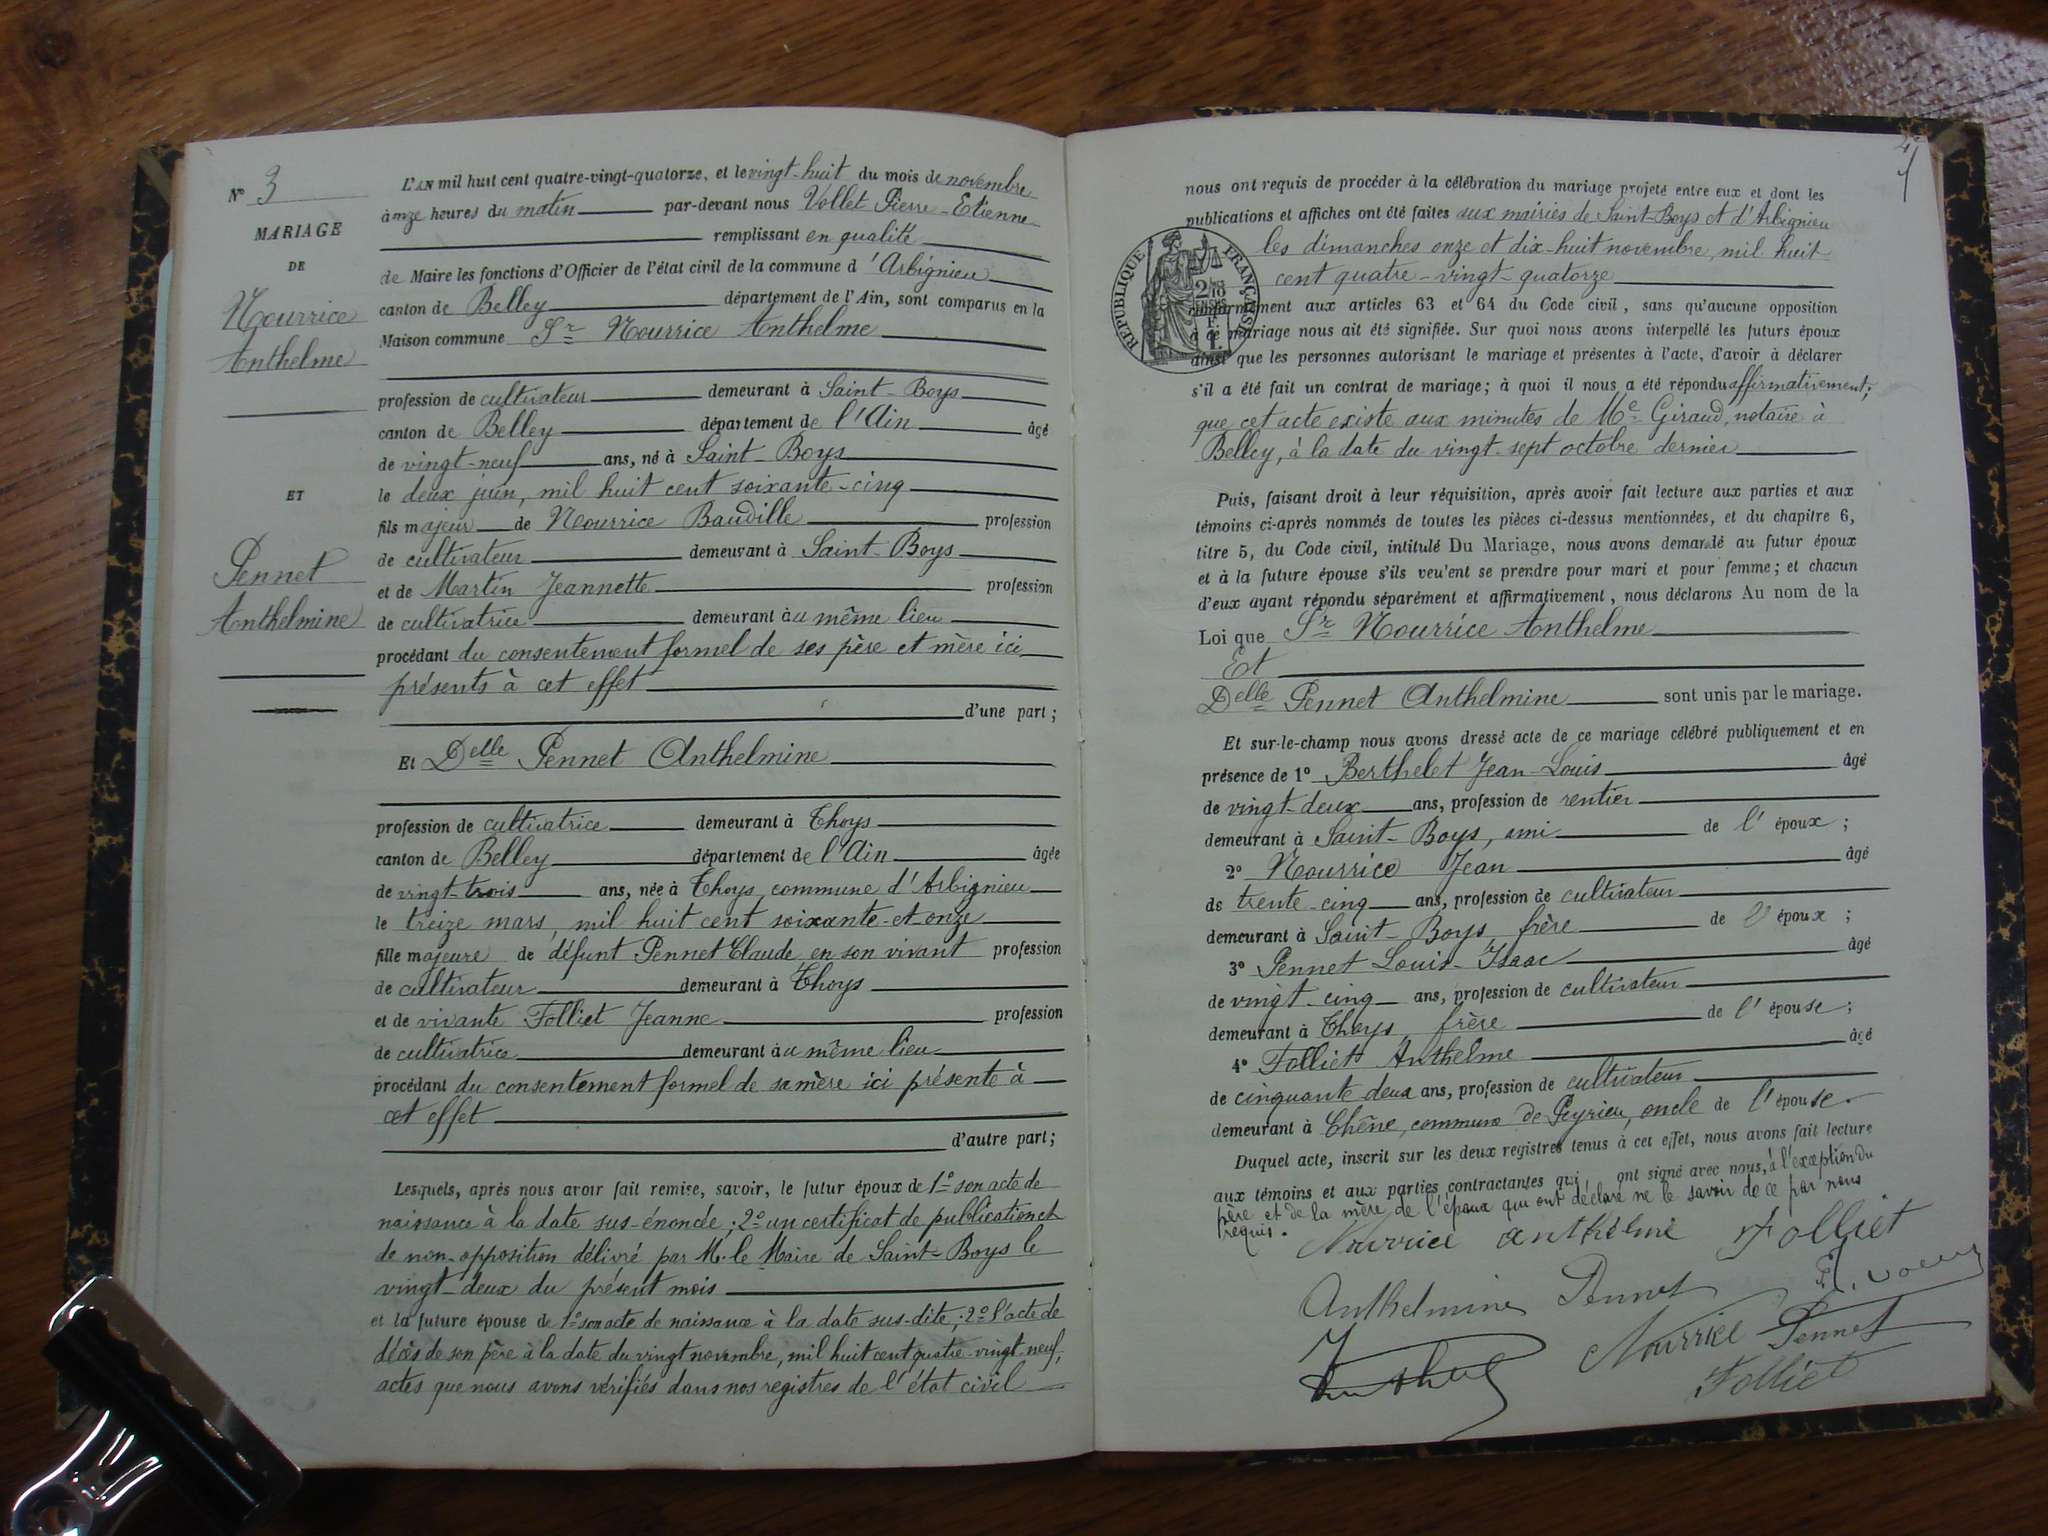 N° 3
MARIAGE
DE
Nourrice
Anthelme
ET
Pennet
Anthelmine
L'AN mil huit cent quatre-vingt-quatorze, et le vingt-huit du mois de novembre
à onze heures du matin par-devant nous Vollet Pierre-Etienne
remplissant en qualité
de Maire les fonctions d'Officier de l'état civil de la commune d'Arbignieu
canton de Belley département de l'Ain, sont comparus en la
Maison commune Sr Nourrice Anthelme
profession de cultivateur demeurant à Saint-Boys
canton de Belley département de l'Ain âgé
de vingt-neuf ans, né à Saint-Boys
le deux juin, mil huit cent soixante-cinq
fils majeur de Nourrice Baudille profession
de cultivateur demeurant à Saint-Boys
et de Martin Jeannette profession
de cultivatrice demeurant au même lieu
procédant du consentement formel de ses père et mère ici
présents à cet effet
d'une part;
Et Delle Pennet Anthelmine
profession de cultivatrice demeurant à Thoys
canton de Belley département de l'Ain âgée
de vingt-trois ans, née à Thoys, commune d'Arbignieu
le treize mars, mil huit cent soixante-et-onze
fille majeure de défunt Pennet Claude, en son vivant profession
de cultivateur demeurant à Thoys
et de vivante Folliet Jeanne profession
de cultivatrice demeurant au même lieu
procédant du consentement formel de sa mère ici présente à
cet effet
d'autre part;
Lesquels, après nous avoir fait remise, savoir, le futur époux de 1° son acte de
naissance à la date sus-énoncée; 2° un certificat de publication et
de non-opposition délivré par M. le Maire de Saint-Boys le
vingt-deux du présent mois
et la future épouse de 1° son acte de naissance à la date sus-dite; 2° l'acte de
décès de son père à la date du vingt novembre, mil huit cent quatre-vingt-neuf,
actes que nous avons vérifiés dans nos registres de l'état civil
4
nous ont requis de procéder à la célébration du mariage projeté entre eux et dont les
publications et affiches ont été faites aux mairies de Saint-Boys et d'Arbignieu
les dimanches onze et dix-huit novembre, mil huit
cent quatre-vingt-quatorze
RÉPUBLIQUE FRANÇAISE
conformément aux articles 63 et 64 du Code civil, sans qu'aucune opposition
à ce mariage nous ait été signifiée. Sur quoi nous avons interpellé les futurs époux
ainsi que les personnes autorisant le mariage et présentes à l'acte, d'avoir à déclarer
s'il a été fait un contrat de mariage; à quoi il nous a été répondu affirmativement;
que cet acte existe aux minutes de Me Giraud, notaire à
Belley, à la date du vingt-sept octobre dernier
Puis, faisant droit à leur réquisition, après avoir fait lecture aux parties et aux
témoins ci-après nommés de toutes les pièces ci-dessus mentionnées, et du chapitre 6,
titre 5, du Code civil, intitulé Du Mariage, nous avons demandé au futur époux
et à la future épouse s'ils veulent se prendre pour mari et pour femme; et chacun
d'eux ayant répondu séparément et affirmativement, nous déclarons Au nom de la
Loi que Sr Nourrice Anthelme
Et
Delle Pennet Anthelmine sont unis par le mariage.
Et sur-le-champ nous avons dressé acte de ce mariage célébré publiquement et en
présence de 1° Berthelet Jean-Louis âgé
de vingt-deux ans, profession de rentier
demeurant à Saint-Boys, ami de l'époux;
2° Nourrice Jean âgé
de trente-cinq ans, profession de cultivateur
demeurant à Saint-Boys, frère de l'époux;
3° Pennet Louis-Isaac âgé
de vingt-cinq ans, profession de cultivateur
demeurant à Thoys, frère de l'épouse;
4° Folliet Anthelme âgé
de cinquante deux ans, profession de cultivateur
demeurant à Chêne, commune de Peyrieu, oncle de l'épouse.
Duquel acte, inscrit sur les deux registres tenus à cet effet, nous avons fait lecture
aux témoins et aux parties contractantes qui ont signé avec nous, à l'exception du
père et de la mère de l'époux qui ont déclaré ne le savoir de ce par nous
requis.
Nourrice anthelme Folliet
Anthelmine Pennet
Nourrice Pennet
Folliet